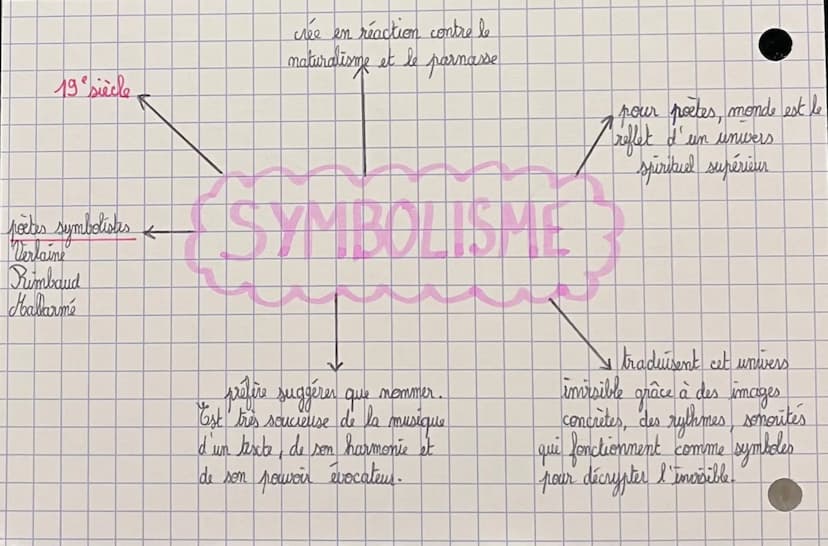 crée en réaction contre le
naturalisme et le parnasse
19e siècle
pour poètes, monde est le
reflet d'un univers
spirituel supérieur
SYMBOLISME
poètes symbolistes
Verlaine
Rimbaud
Mallarmé
préfère suggérer que nommer.
Est très soucieuse de la musique
d'un texte, de son harmonie et
de son pouvoir évocateur.
traduisent cet univers
invisible grâce à des images
concrètes, des rythmes, sonorités
qui fonctionnent comme symboles
pour décrypter l'invisible.